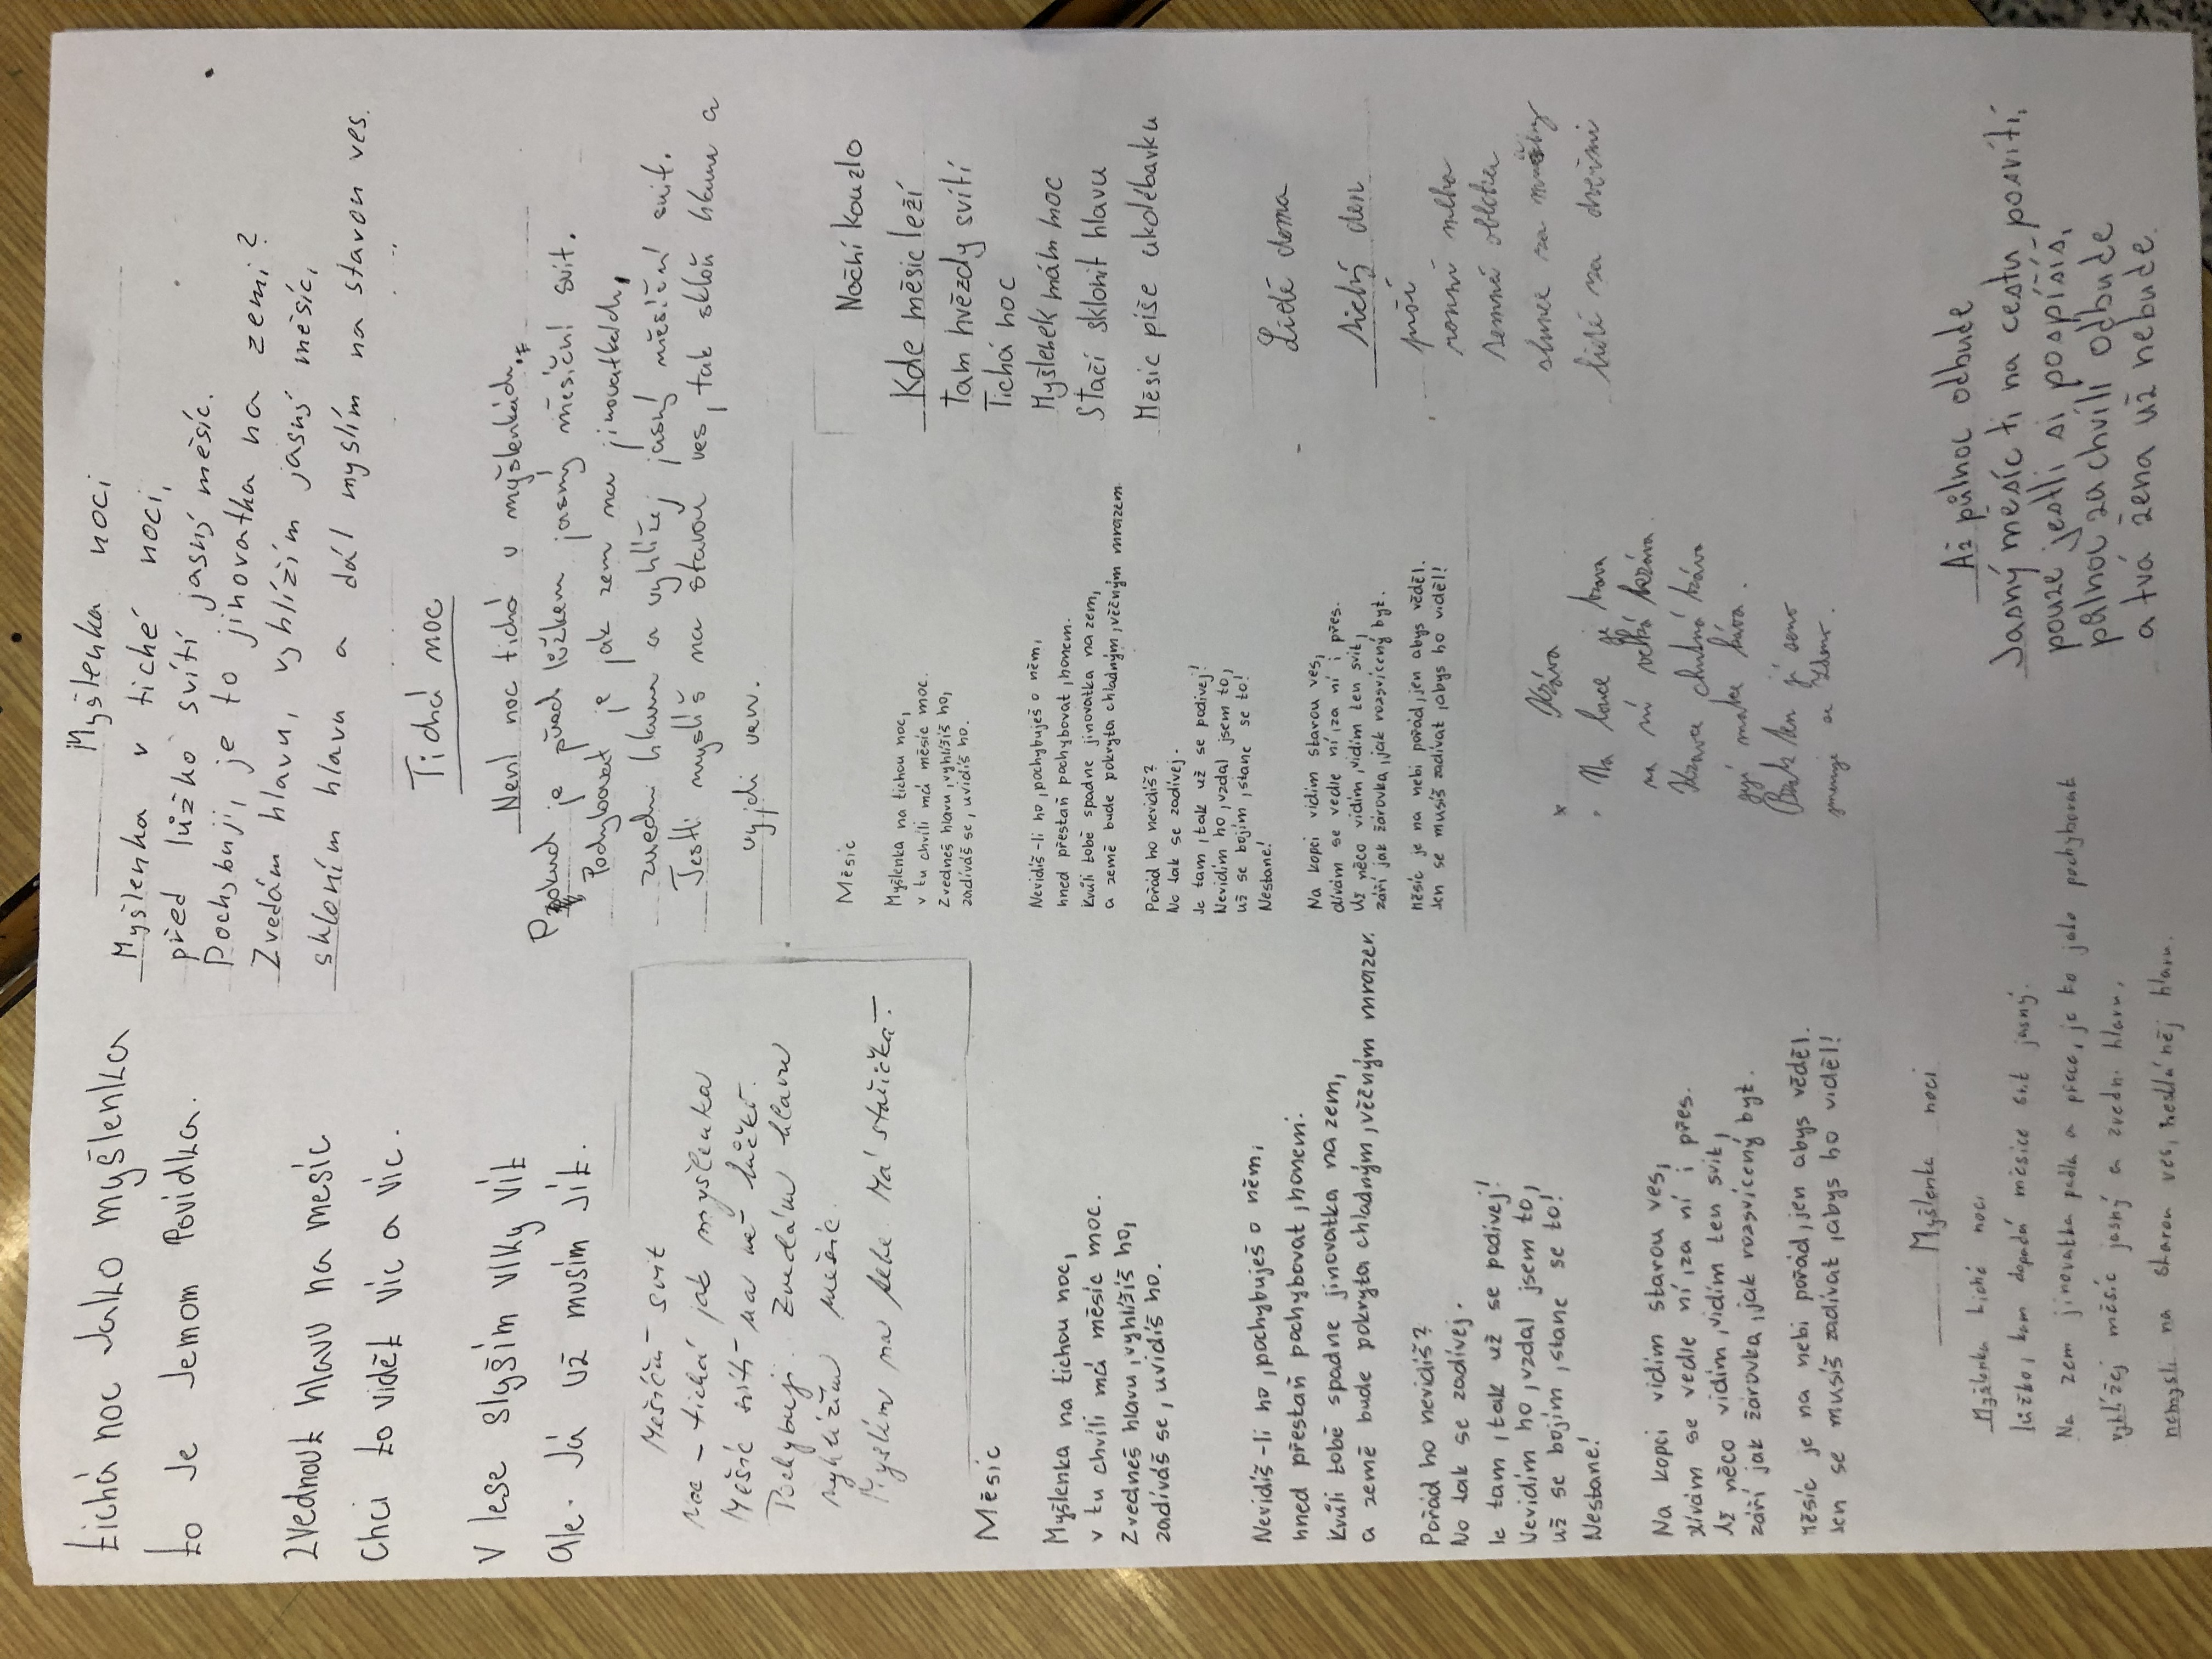 tichá noc Jako myšlenka
to Je Jemom Povidka.
Zvednout hlavu na mesic
Chci to vidět víc a víc.
V lese slyším vlky výt
ale. Já už musím jít.
Měsíční svit
noc - tichá jak myšlenka
Měsíc svítí - na mé lůžko.
Pochybuji. Zvedám hlavu
vyhlížím měsíc.
Myslím na sebe
Měsíc
Myšlenka na tichou noc,
v tu chvíli má měsíc moc.
Zvedneš hlavu, vyhlížíš ho,
zadíváš se, uvidíš ho.
Nevidíš-li ho, pochybuješ o něm,
hned přestaň pochybovat, honem.
Kvůli tobě spadne jinovatka na zem,
a země bude pokryta chladným, věčným mrazem.
Pořád ho nevidíš?
No tak se zadívej.
Je tam, tak už se podívej!
Nevidím ho, vzdal jsem to,
už se bojím, stane se to!
Nestane!
Na kopci vidím starou ves,
dívám se vedle ní, za ní i přes.
Už něco vidím, vidím ten svit,
září jak žárovka, jak rozsvícený byt.
Měsíc je na nebi pořád, jen abys věděl.
Jen se musíš zadívat, abys ho viděl!
Myšlenka noci
Myšlenka tiché noci
lůžko, kam dopadá měsíce svit jasný.
Na zem jinovatka padla a přece, je to jako pochybovat
vyhlížej měsíc jasný a zvedni hlavu,
nemysli na starou ves, neskláněj hlavu.
Myšlenka noci
Myšlenka v tiché noci,
před lůžko svítí jasný měsíc.
Pochybuji, je to jinovatka na zemi?
Zvedám hlavu, vyhlížím jasný měsíc,
skloním hlavu a dál myslím na starou ves.
Tichá noc
Není noc tichá v myšlenkách.
Pokud je před lůžkem jasný měsíční svit.
Pochybovat je jak zem na jinovatkách,
zvedni hlavu a vyhlížej jasný měsíční svit.
Jestli myslíš na starou ves, tak skloň hlavu a
vyjdi ven.
Měsíc
Myšlenka na tichou noc,
v tu chvíli má měsíc moc.
Zvedneš hlavu, vyhlížíš ho,
zadíváš se, uvidíš ho.
Nevidíš-li ho, pochybuješ o něm,
hned přestaň pochybovat, honem.
Kvůli tobě spadne jinovatka na zem,
a země bude pokryta chladným, věčným mrazem
Pořád ho nevidíš?
No tak se zadívej.
Je tam, tak už se podívej!
Nevidím ho, vzdal jsem to,
už se bojím, stane se to!
Nestane!
Na kopci vidím starou ves,
dívám se vedle ní, za ní i přes.
Už něco vidím, vidím ten svit,
září jak žárovka, jak rozsvícený byt.
Měsíc je na nebi pořád, jen abys věděl.
Jen se musíš zadívat, abys ho viděl!
Kráva
Na louce je tráva
na ní velká kráva
Krava chutná
její matka
Býk ten jí seno
jmenuje se Zdeno.
Noční kouzlo
Kde měsíc leží
Tam hvězdy svítí
Tichá noc
Myšlenek mám moc
Stačí sklonit hlavu
Měsíc píše ukolébavku
Listí doma
den
ranní mlha
temná obloha
slunce za mraky
listí za dveřmi
Až půlnoc odbude
Jasný mesíc ti na cestu posvítí,
pouze jestli si pospíšíš,
půlnoc za chvíli odbude
a tvá žena už nebude.